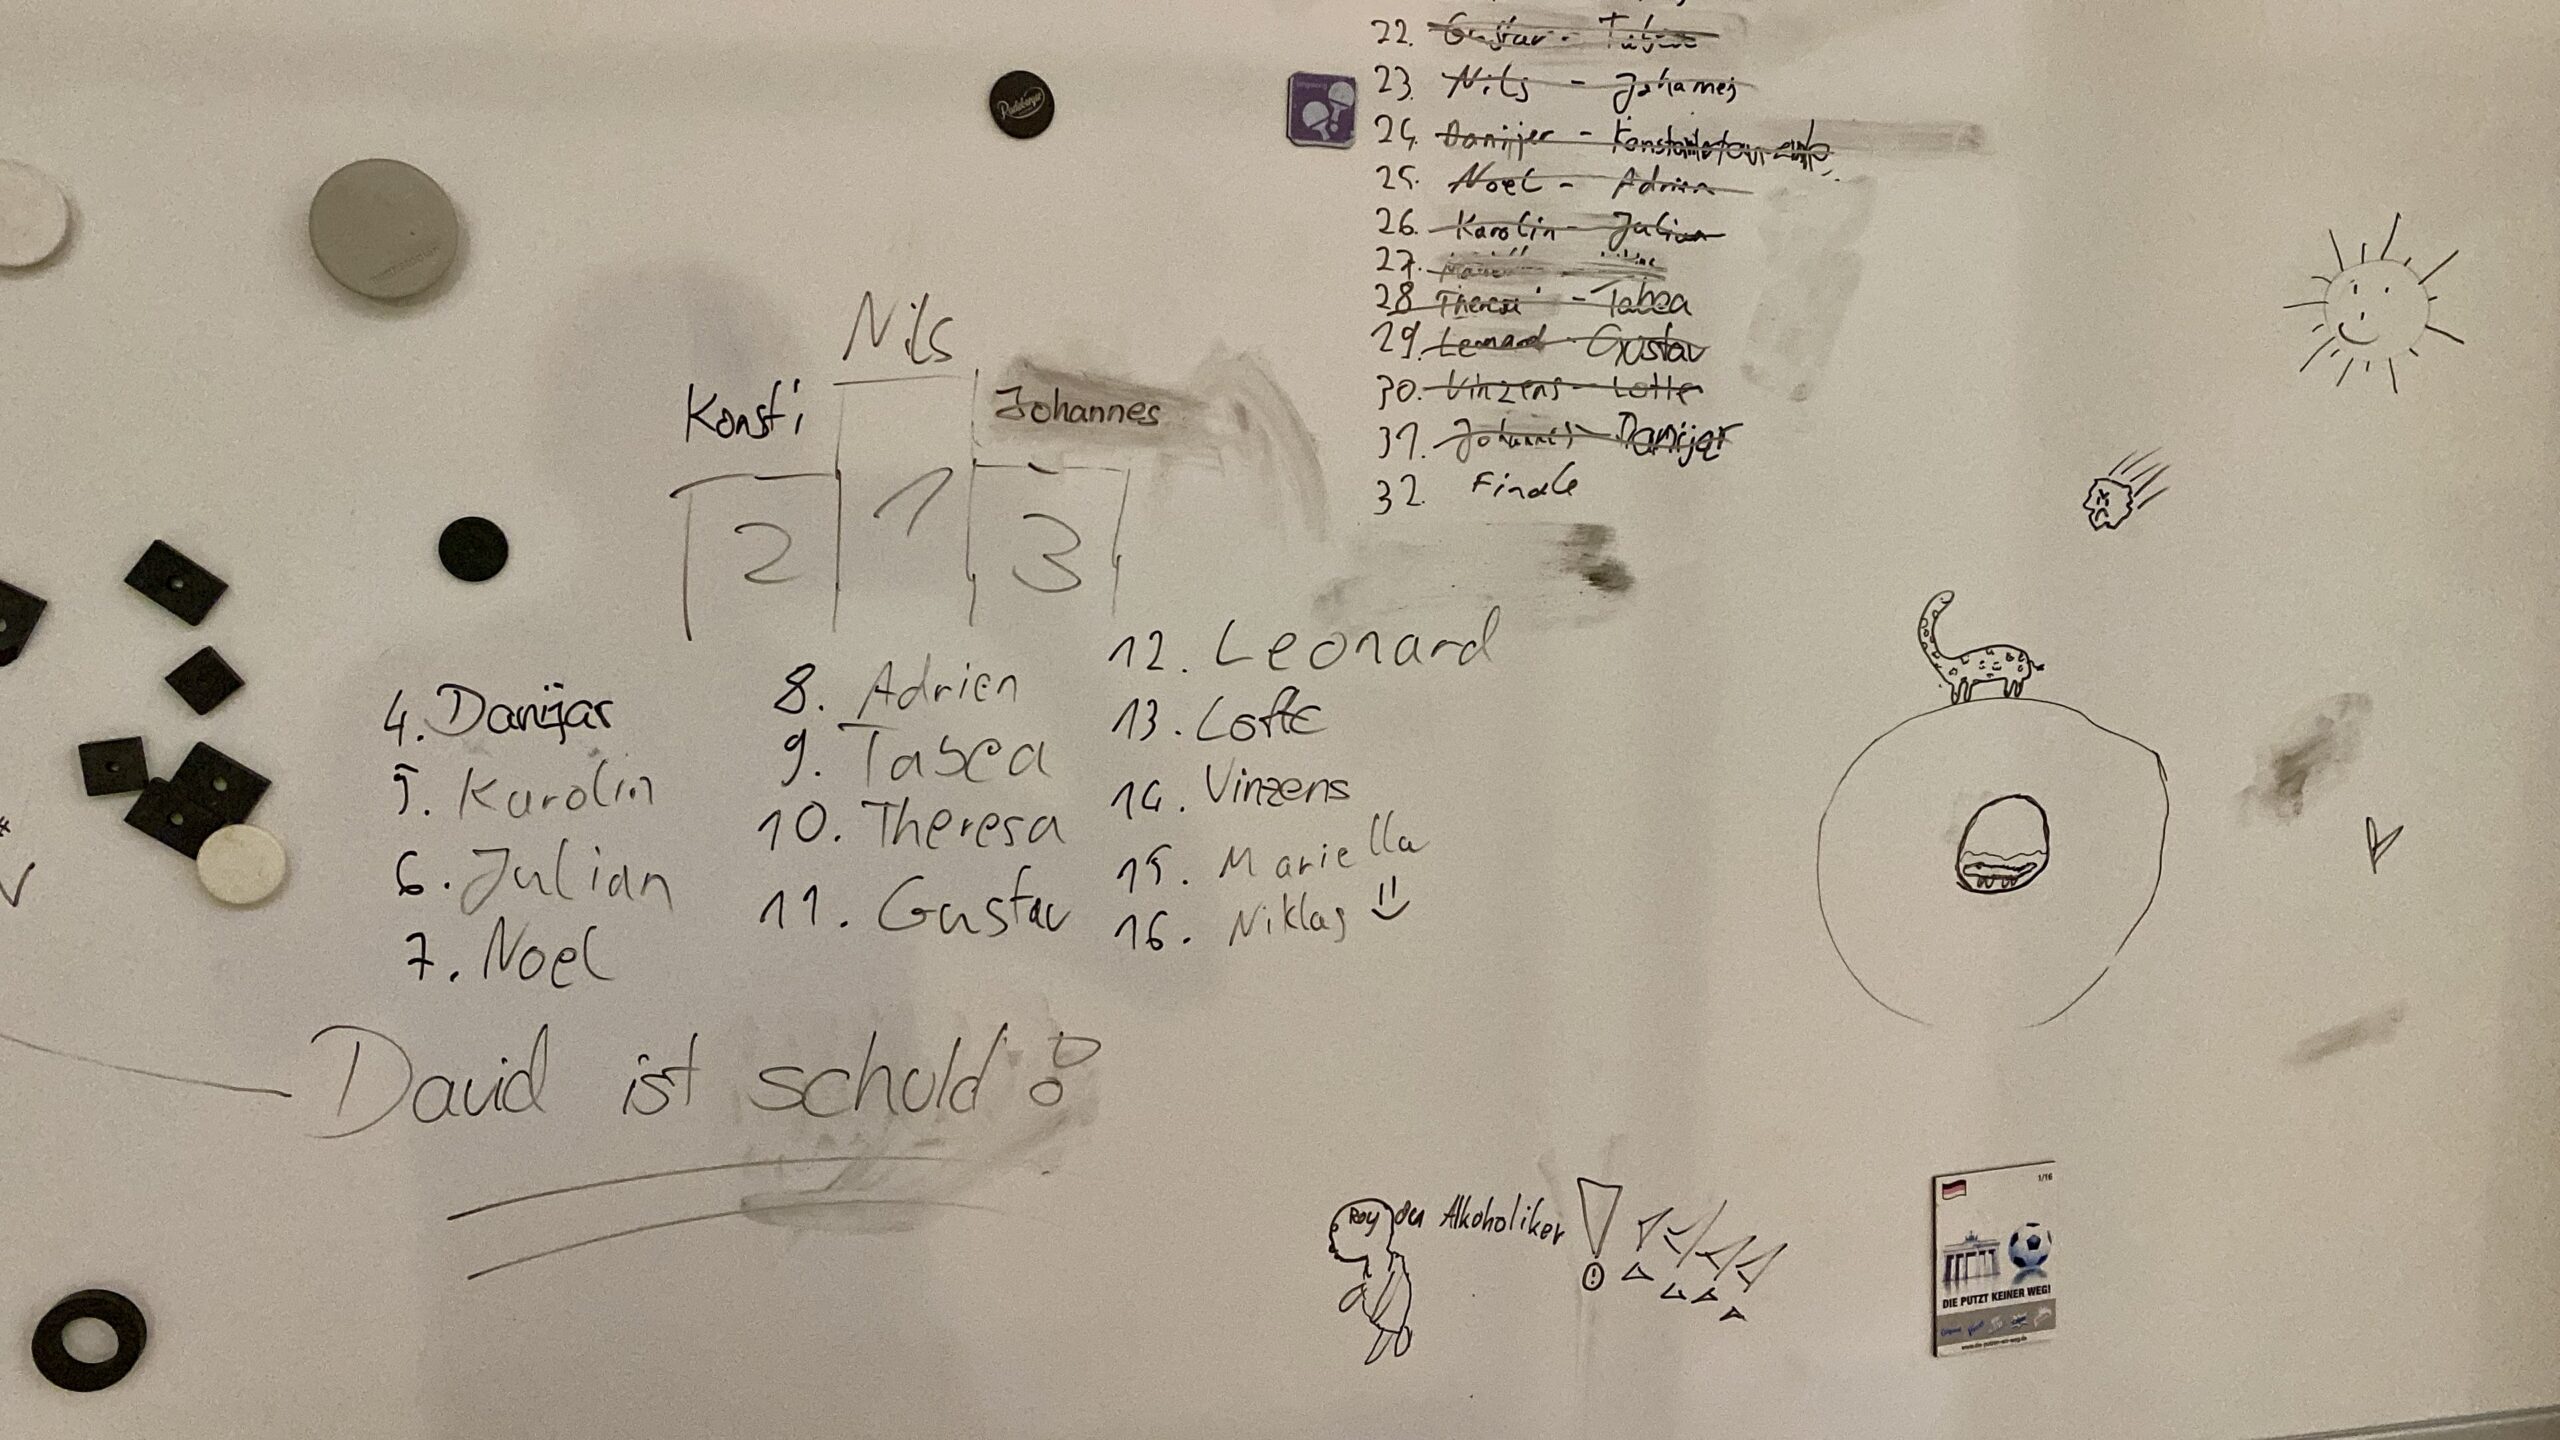 22. Gustav - Tabea
23. Nils - Johannes
24. Danijer -
25. Noel - Adrien
26. Karolin - Julian
27.
28 Theresa - Tabea
29. Leonard - Gustav
30. Vinzens - Lotte
31. Johannes - Danijar
32. Finale
Radeberger
Nils
Konsti
Johannes
2 1 3
4. Danijar
5. Karolin
6. Julian
7. Noel
8. Adrien
9. Tabea
10. Theresa
11. Gustav
12. Leonard
13. Lotte
14. Vinzens
15. Mariella
16. Niklas
David ist schuld!
Roy der Alkoholiker !
1/16
DIE PUTZT KEINER WEG!